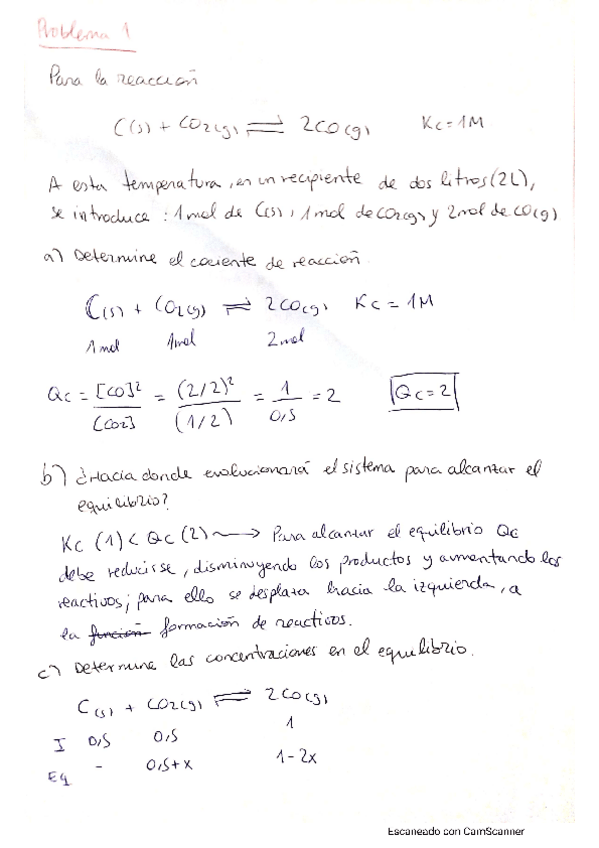 Problema 1
Para la reacción
C(s) + CO2(g) ⇌ 2CO(g) Kc = 1M
A esta temperatura, en un recipiente de dos litros (2L),
se introduce : 1 mol de C(s), 1 mol de CO2(g) y 2 mol de CO(g)
a) Determine el cociente de reacción.
C(s) + CO2(g) ⇌ 2CO(g) Kc = 1M
1 mol 1 mol 2 mol
Qc = [CO]² / [CO2] = (2/2)² / (1/2) = 1 / 0,5 = 2 Qc = 2
b) ¿Hacia donde evolucionará el sistema para alcanzar el
equilibrio?
Kc (1) < Qc (2) → Para alcanzar el equilibrio Qc
debe reducirse, disminuyendo los productos y aumentando los
reactivos; para ello se desplaza hacia la izquierda, a
la función formación de reactivos.
c) Determine las concentraciones en el equilibrio.
C(s) + CO2(g) ⇌ 2CO(g)
I 0,5 0,5 1
Eq - 0,5+x 1-2x
Escaneado con CamScanner